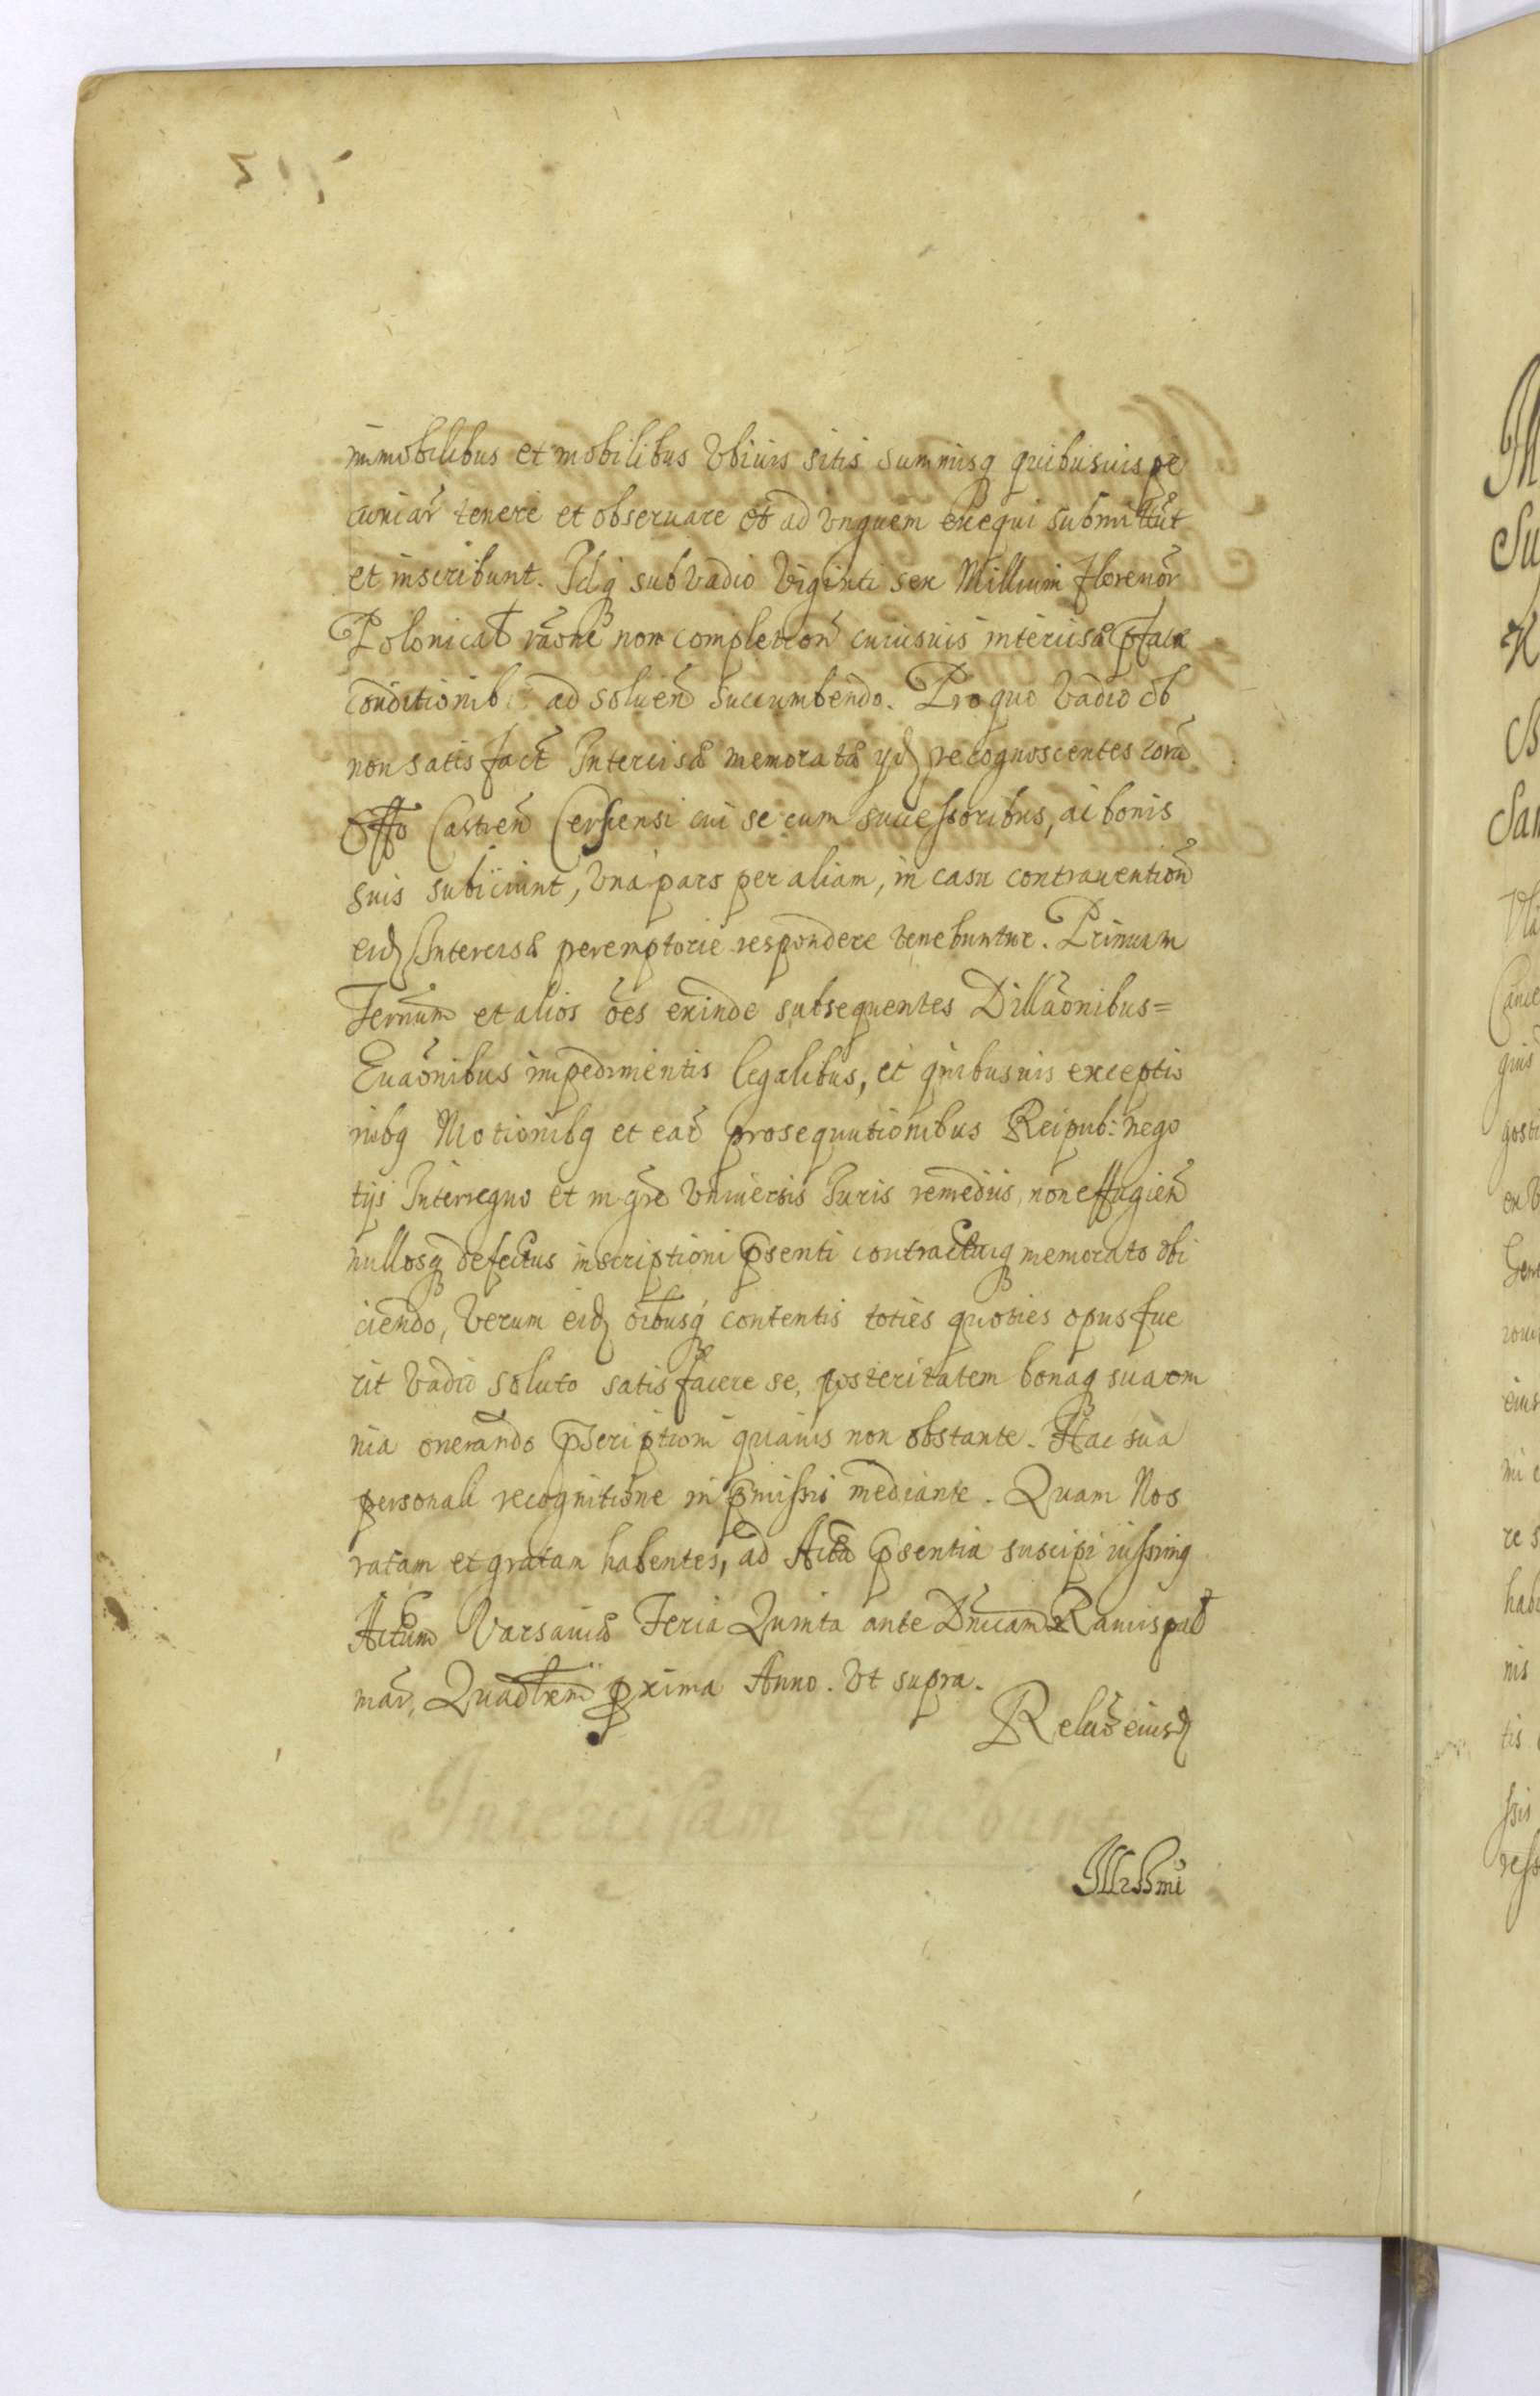 immobilibus et mobilibus Vbiuis sitis summisq quibusuis pe
cuniar̃ tenere et obseruare et ad vnguem exequi submittũt
et inscribunt. Idq sub vadio Viginti sex Millium florenor̃
Polonical rãone non completion̄ cuiusuis intercisæ
conditionib ad soluen̄ succumbendo. Pro quo vadio ob
non satisfact̃ Intercisæ memoratæ recognoscentes corã
Offo Castren̄ Cersiensi cui se cum successoribus, ac bonis
suis subiiciunt, vna pars per aliam, in casu contrauention̄
eid Intercisæ peremptorie respondere tenebuntur. Primum
Ternum et alios ões exinde subsequentes Dillãonibus=
Euãonibus impedimentis legalibus, et quibusuis exceptio
nibq Motionibq et ear̄ prosequutionibus Reipub: nego
tys Interregno et in gñe Vniuersis Iuris remediis, non effugien̄
nullosq defectus inscriptioni p̄senti contractuiq memorato obi
ciendo, Verum eid oĩbusq contentis toties quoties opus fue
rit Vadio soluto satisfacere se, posteritatem bonaq sua om
nia onerando p̄scriptioni quauis non obstante. Hac sua
personali recognitione in p̄missis mediante. Quam Nos
ratam et gratam habentes, ad Acta p̄sentia suscipi iussimq
Actum Varsauiæ Feria Quinta ante Dñicam Ramispal
mar̃, Quadlem̄ pxima Anno. Vt supra.
Relãõ eiusd
Illrssmi